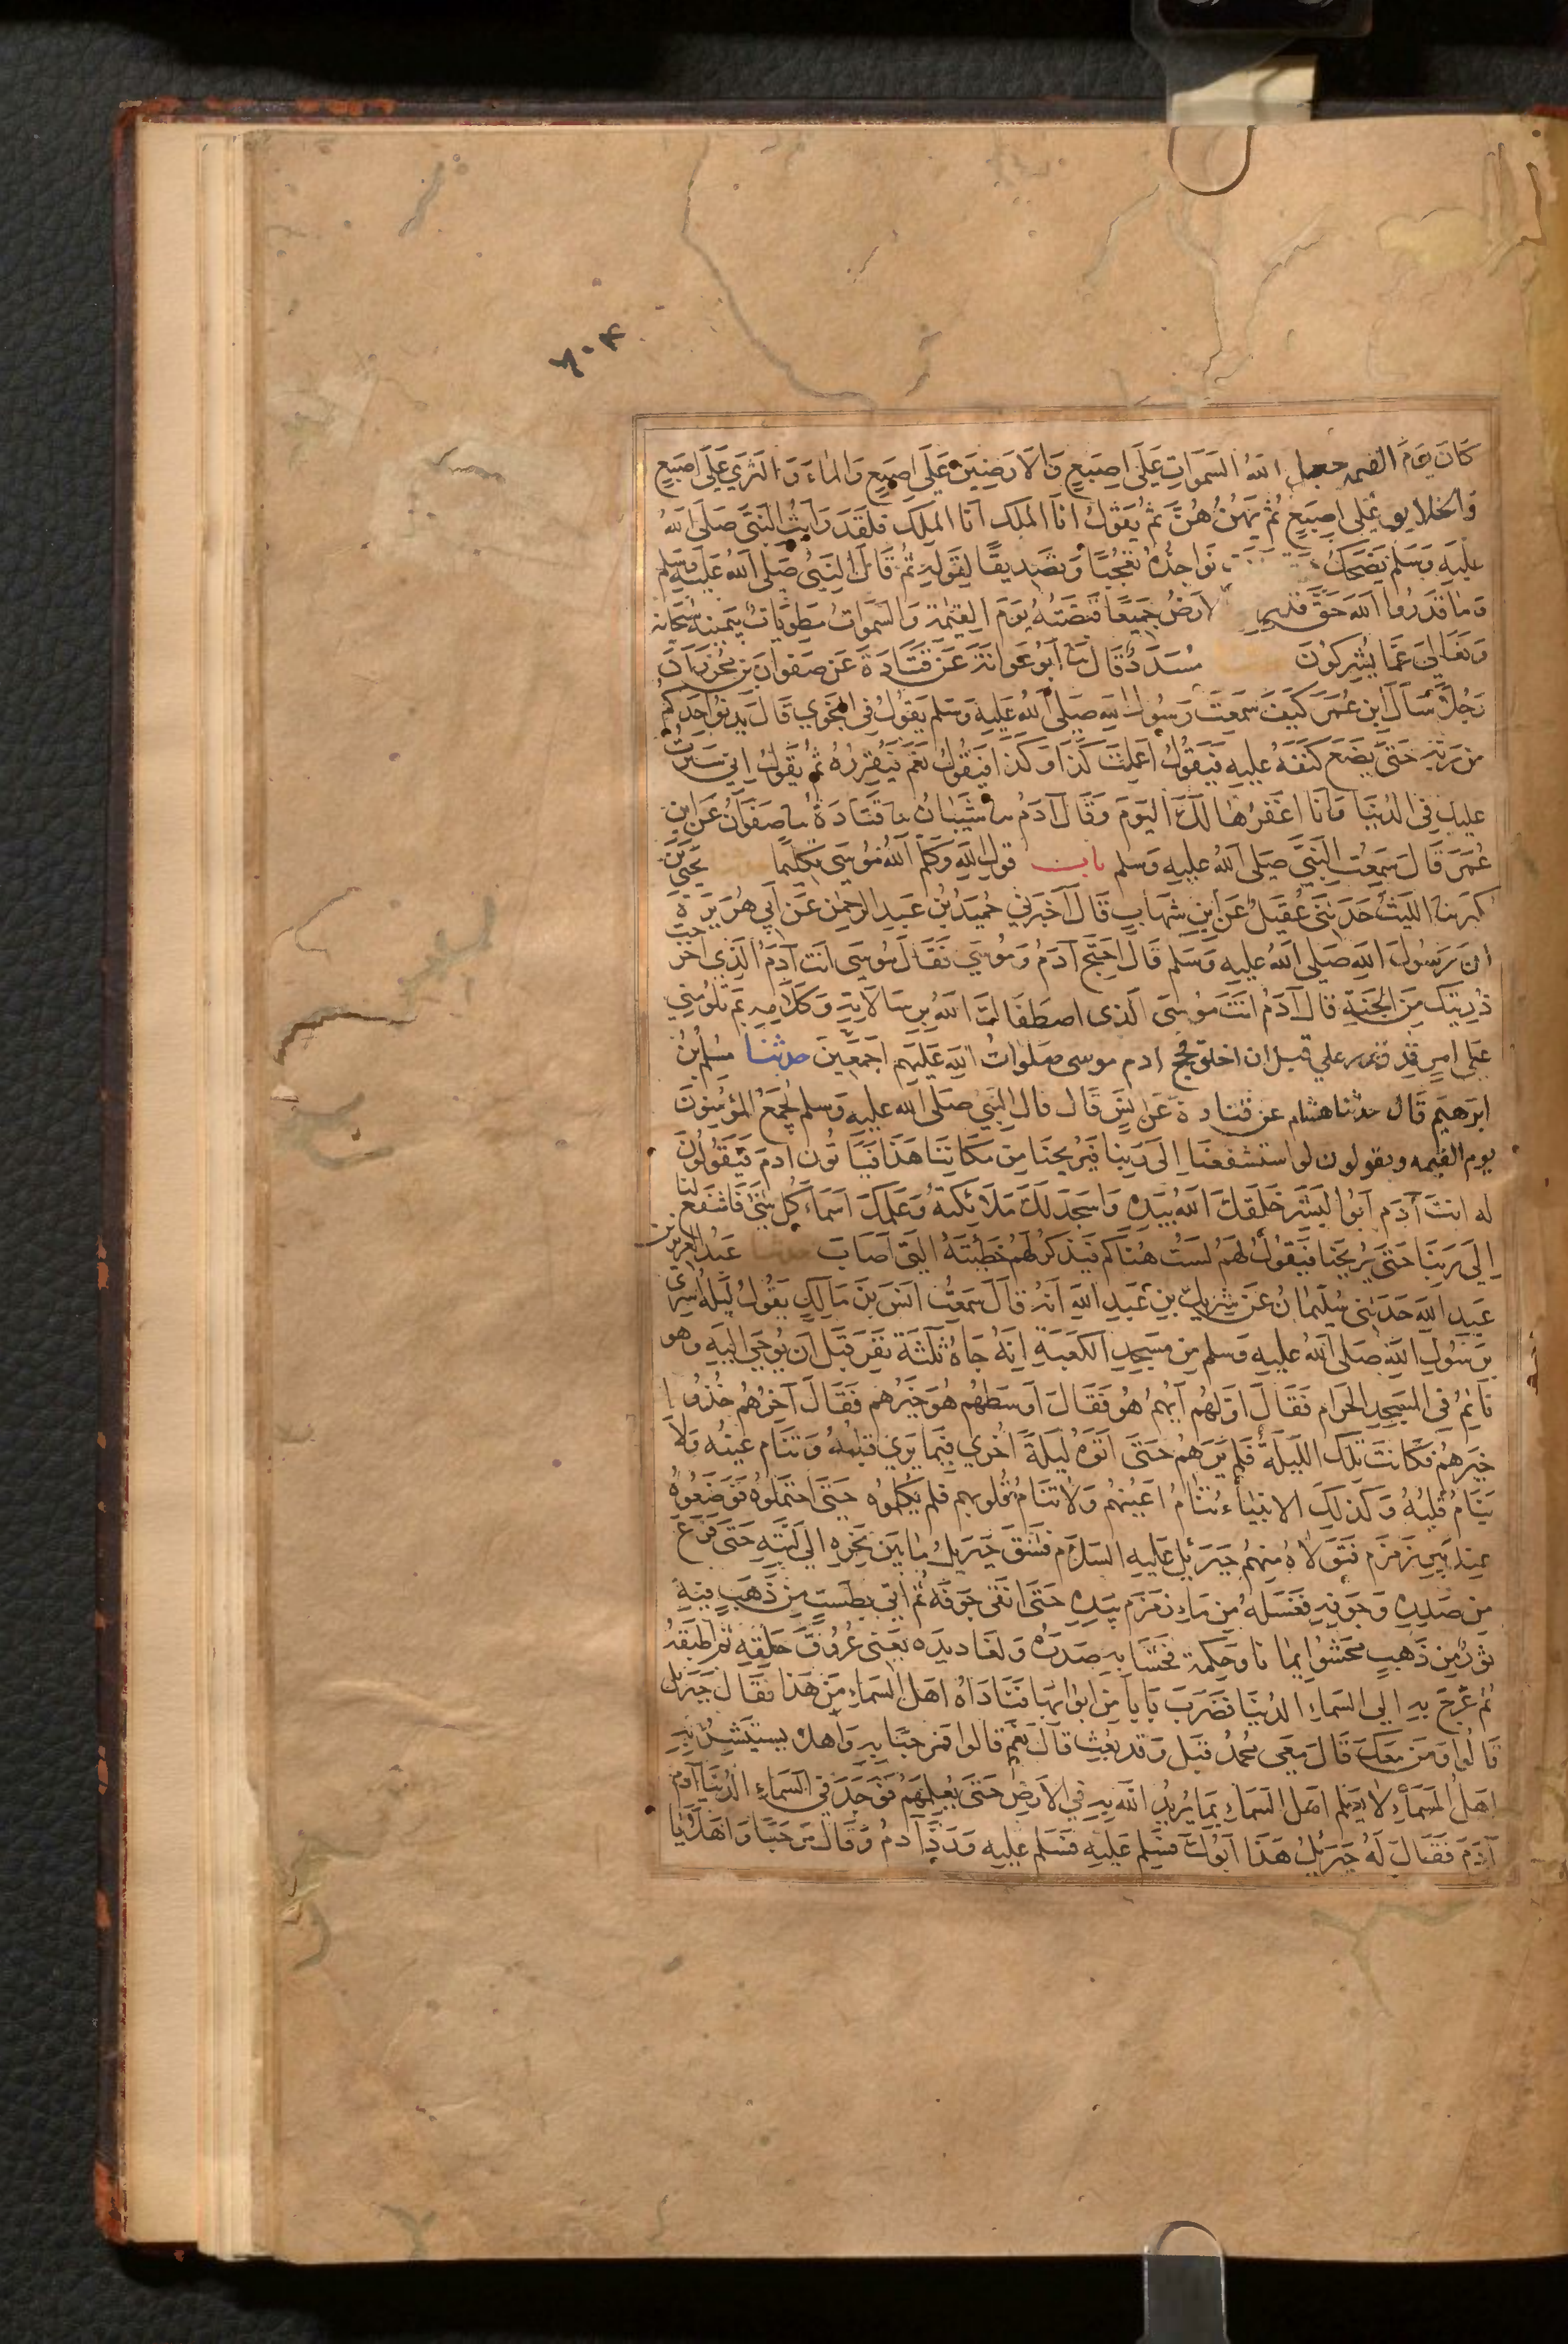 ٦٠٤
كَانَ يَوْمَ القيمه جعل اللهُ السَّمَوَاتِ عَلَى اِصْبَعٍ وَالاَرَضِيْنَ عَلَى اِصْبَعٍ وَالمَاءَ وَالثَّرَى عَلَى اِصْبَعٍ
وَالخَلَايِقَ عَلَى اِصْبَعٍ ثُمَّ يَهُزُّهُنَّ ثُمَّ يَقُوْلُ اَنَا المَلِكُ اَنَا المَلِكُ فَلَقَدْ رَاَيْتُ النَّبِيَّ صَلَى اللهُ
عَلَيْهِ وَسَلَّمَ يَضْحَكُ نَوَاجِذُهُ تَعَجُّبًا وَتَصْدِيقًا لِقَوْلِهِ ثُمَّ قَالَ النَّبِيُّ صَلَى اللهُ عَلَيْهِ وَسَلَّم
وَمَا قَدَرُوا اللهَ حَقَّ قَدْرِهِ لاَرْضُ جَمِيْعًا قَبْضَتُهُ يَوْمَ القِيٰمَةِ وَالسَّمَوَاتُ مَطْوِيَّاتٌ بِيَمِيْنِهِ سُبْحَانَهُ
وَتَعَالَى عَمَّا يُشْرِكُوْنَ مُسَدَّدٌ قَالَ ثنا اَبُوْ عَوَانَةَ عَنْ قَتَادَةَ عَنْ صَفْوَانَ بْنِ مُحْرِزٍ اَنَّ
رَجُلاً سَأَلَ ابْنَ عُمَرَ كَيْفَ سَمِعْتَ رَسُوْلَ اللهِ صَلَى اللهُ عَلَيْهِ وَسَلَّمَ يَقُوْلُ فِي النَّجْوَي قَالَ يَدْنُوْ اَحَدُكُمْ
مِنْ رَبِّهِ حَتَّى يَضَعَ كَنَفَهُ عَلَيْهِ فَيَقُوْلُ اَعَمِلْتَ كَذَا وَكَذَا فَيَقُوْلُ نَعَمْ فَيُقَرِّرُهُ ثُمَّ يَقُوْلُ اِنِّي سَتَرْتُ
عَلَيْكَ فِي الدُّنْيَا وَاَنَا اَغْفِرُهَا لَكَ اليَوْمَ وَقَالَ آدَمُ ثنا شَيْبَانُ ثنا قَتَادَةُ ثنا صَفْوَانُ عَنِ ابْنِ
عُمَرَ قَالَ سَمِعْتُ النَّبِيَّ صَلَى اللهُ عَلَيْهِ وَسَلَم باب قَوْلِ اللهِ وَكَلَّمَ اللهُ مُوْسَى تَكْلِيْمًا يَحْيَى بْنُ
بكير ثنا اللَّيْثُ حَدَّثَنِي عُقَيْلٌ عَنِ ابْنِ شِهَابٍ قَالَ اَخْبَرَنِي حُمَيْدُ بْنُ عَبْدِ الرَّحْمٰنِ عَنْ اَبِي هُرَيْرَةَ
اَنَّ رَسُوْلَ اللهِ صَلَى اللهُ عَلَيْهِ وَسَلَّمَ قَالَ احْتَجَّ آدَمُ وَمُوْسَى فَقَالَ مُوْسَى اَنْتَ آدَمُ الَّذِي اَخْرَجْتَ
ذُرِّيَتَكَ مِنَ الجَنَّةِ قَالَ آدَمُ اَنْتَ مُوْسَى الَّذِي اصْطَفَاكَ اللهُ بِرِسَالَاتِهِ وَكَلَامِهِ بِمَ تَلُوْمُنِي
عَلَى اَمْرٍ قَدْ قدر علي قبل ان اخلق فحج ادم موسى صَلَوَاتُ اللهِ عَلَيْهِمْ اَجْمَعِيْنَ حدثنا مُسْلِمُ بْنُ
ابْرَهِيْمَ قَالَ حدثنا هشام عن قتادة عَنْ اَنَسٍ قَالَ قال النَّبِيُّ صَلَى اللهُ عَلَيْهِ وَسَلَم يُجْمَعُ المُؤْمِنُوْنَ
يوم القيمه ويقولون لو استشفعنا اِلَى رَبِّنَا فَيُرِيْحُنَا مِنْ مَكَانِنَا هَذَا فَيَاْتُوْنَ ادَمَ فَيَقُوْلُوْنَ
له انت آدَم اَبُو البَشَرِ خَلَقَكَ اللهُ بِيَدِهِ وَاَسْجَدَ لَكَ مَلَائِكَتَهُ وَعَلَّمَكَ اَسْمَاءَ كُلِّ شَيْءٍ فَاشْفَعْ لَنَا
اِلَى رَبِّنَا حَتَّى يُرِيْحَنَا فَيَقُوْلُ لَهُمْ لَسْتُ هُنَاكُمْ فَيَذْكُرُ لَهُمْ خَطِيْئَتَهُ الَّتِي اَصَابَ حدثنا عَبْدُ العَزِيْزِ بْنُ
عَبْدِ اللهِ حَدَّثَنِي سُلَيْمَانُ عَنْ شَرِيْكِ بْنِ عَبْدِ اللهِ اَنَّهُ قَالَ سَمِعْتُ اَنَسَ بْنَ مَالِكٍ يَقُوْلُ لَيْلَةَ اُسْرِيَ
بِرَسُوْلِ اللهِ صَلَى اللهُ عَلَيْهِ وَسَلَم مِنْ مَسْجِدِ الكَعْبَةِ اِنَّهُ جَاءَهُ ثَلٰثَةُ نَفَرٍ قَبْلَ اَنْ يُوْحَى اِلَيْهِ وَهُوَ
نَائِمٌ فِي المَسْجِدِ الحَرَامِ فَقَالَ اَوَّلُهُمْ اَيُّهُمْ هُوَ فَقَالَ اَوْسَطُهُمْ هُوَ خَيْرُهُمْ فَقَالَ آخِرُهُمْ خُذُوْا
خَيْرَهُمْ فَكَانَتْ تِلْكَ اللَّيْلَةَ فَلَمْ يَرَهُمْ حَتَّى اَتَوْهُ لَيْلَةً اُخْرَي فِيْمَا يَرَي قَلْبُهُ وَتَنَام عَيْنُهُ وَلَا
يَنَامُ قَلْبُهُ وَكَذَلِكَ الانْبِيَاءُ تَنَامُ اَعْيُنُهُمْ وَلَا تَنَامُ قُلُوْبُهُمْ فَلَمْ يُكَلِّمُوْهُ حَتَّى احْتَمَلُوْهُ فَوَضَعُوْهُ
عِنْدَ بِيْرِ زَمْزَم فَتَوَلَّاهُ مِنْهُمْ جِبْرَئِيْلُ عَلَيْهِ السَّلَامُ فَشَقَّ جِبْرِيْلُ مَا بَيْنَ نَحْرِهِ اِلَى لَبَّتِهِ حَتَّى فَرَغَ
مِنْ صَدْرِهِ وَجَوْفِهِ فَغَسَلَهُ مِنْ مَاءِ زَمْزَم بِيَدِهِ حَتَّى انْقَى جَوْفَهُ ثُمَّ اُتِيَ بِطَسْتٍ مِنْ ذَهَبٍ فِيْهِ
تَوْرٌ مِنْ ذَهَبٍ مَحْشُوًّا اِيْمَانًا وَحِكْمَةً فَحَشَا بِهِ صَدْرَهُ وَلَغَادِيْدَهُ يَعْنِي عُرُوْقَ حَلْقِهِ ثُمَّ اَطْبَقَهُ
ثُمَّ عَرَجَ بِهِ اِلَى السَّمَاءِ الدُّنْيَا فَضَرَبَ بَابًا مِنْ اَبْوَابِهَا فَنَادَاهُ اَهْلُ السَّمَاءِ مَنْ هَذَا فَقَالَ جِبْرِيْلُ
قَالُوا وَمَنْ مَعَكَ قَالَ مَعِي مُحَمَّدٌ قِيْلَ وَقَدْ بُعِثَ قَالَ نَعَمْ قَالُوا فَمَرْحَبًا بِهِ وَاَهْلًا يستبشر بِهِ
اَهْلُ السَّمَاءِ لَا يَعْلَم اَهْلُ السَّمَاءِ بِمَا يُرِيْدُ اللهُ بِهِ فِي الاَرْضِ حَتَّى يُعْلِمَهُمْ فَوَجَدَ فِي السَّمَاءِ الدُّنْيَا آدَمَ
آدَمَ فَقَالَ لَهُ جِبْرَئِيْلُ هَذَا اَبُوْكَ فَسَلِّمْ عَلَيْهِ فَسَلَّمَ عَلَيْهِ وَرَدَّ آدَمُ وَقَالَ مَرْحَبًا وَاَهْلًا يَا